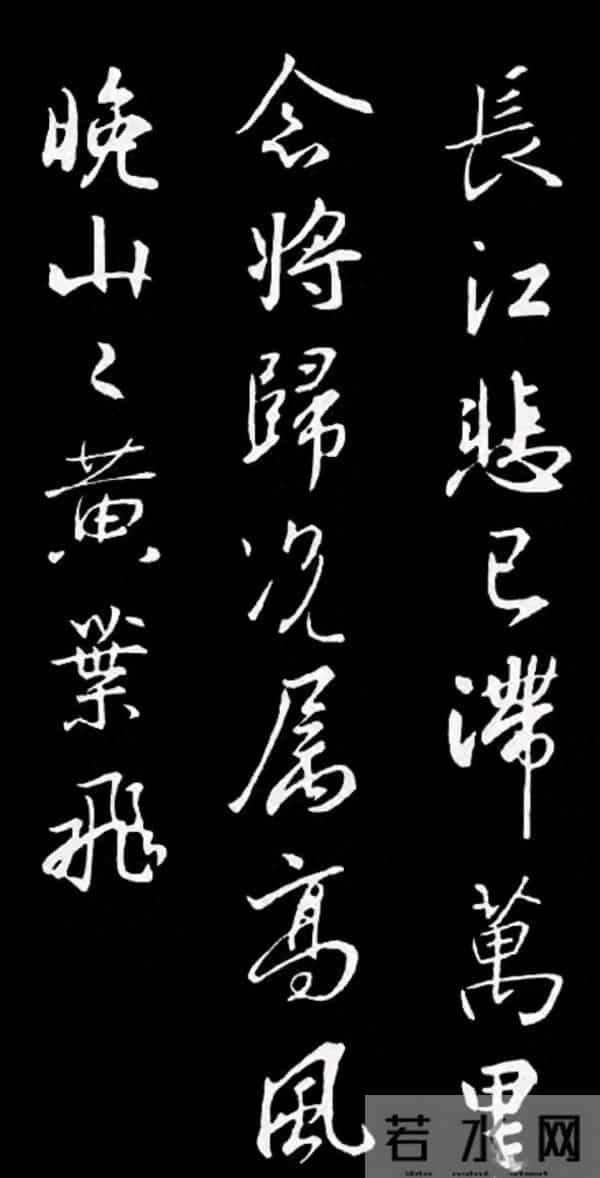 長江悲已滯萬里
念將歸况属髙風
晚山々黃葉飛
若水网